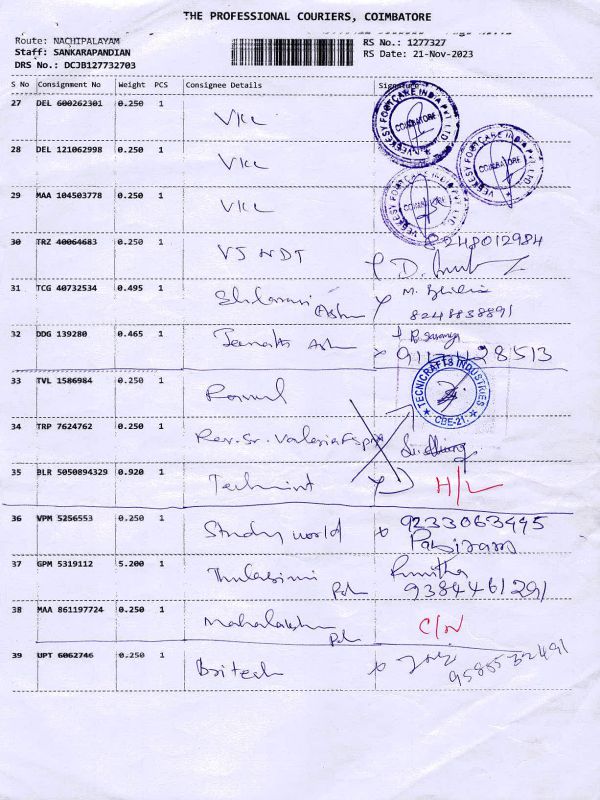 THE PROFESSIONAL COURIERS, COIMBATORE
Route: NACHIPALAYAM
Staff: SANKARAPANDIAN
DRS No.: DCJB127732703
RS No.: 1277327
RS Date: 21-Nov-2023
S No Consignment No Weight PCS Consignee Details Signature
27 DEL 600262301 0.250 1 VKC
VEEKESY FOOTCARE INDIA PVT LTD COIMBATORE
28 DEL 121062998 0.250 1 VKC
VEEKESY FOOTCARE INDIA PVT LTD COIMBATORE
29 MAA 104503778 0.250 1 VKC
VEEKESY FOOTCARE INDIA PVT LTD COIMBATORE
30 TRZ 40064683 0.250 1 VJ NDT 8248012984
31 TCG 40732534 0.495 1 M.
8248838891
32 DDG 139280 0.465 1
33 TVL 1586984 0.250 1
TECNICRAFTS INDUSTRIES CBE-21.
34 TRP 7624762 0.250 1 Rev. Sr. Valeria
35 BLR 5050894329 0.920 1 Techmint H/L
36 VPM 5256553 0.250 1 Study world 9233063445
37 GPM 5319112 5.200 1 Punitha
9384461291
38 MAA 861197724 0.250 1 Mahalakshmi C/N
39 UPT 6062746 0.250 1 Britech 9585532491